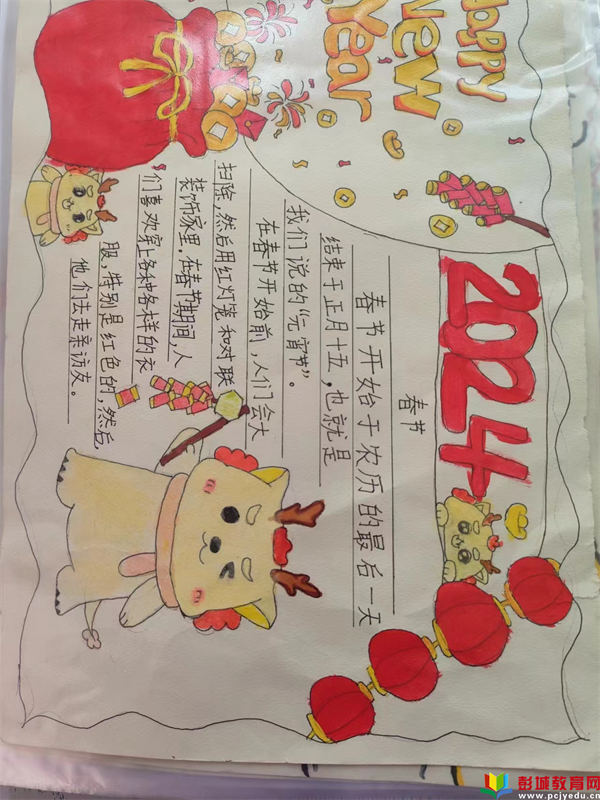 Happy
New
Year
2024
春节
春节开始于农历的最后一天
结束于正月十五,也就是
我们说的“元宵节”。
在春节开始前,人们会大
扫除,然后用红灯笼和对联
装饰家里。在春节期间,人
们喜欢穿上各种各样的衣
服,特别是红色的,然后,
他们去走亲访友。
彭城教育网
www.pcjyedu.cn